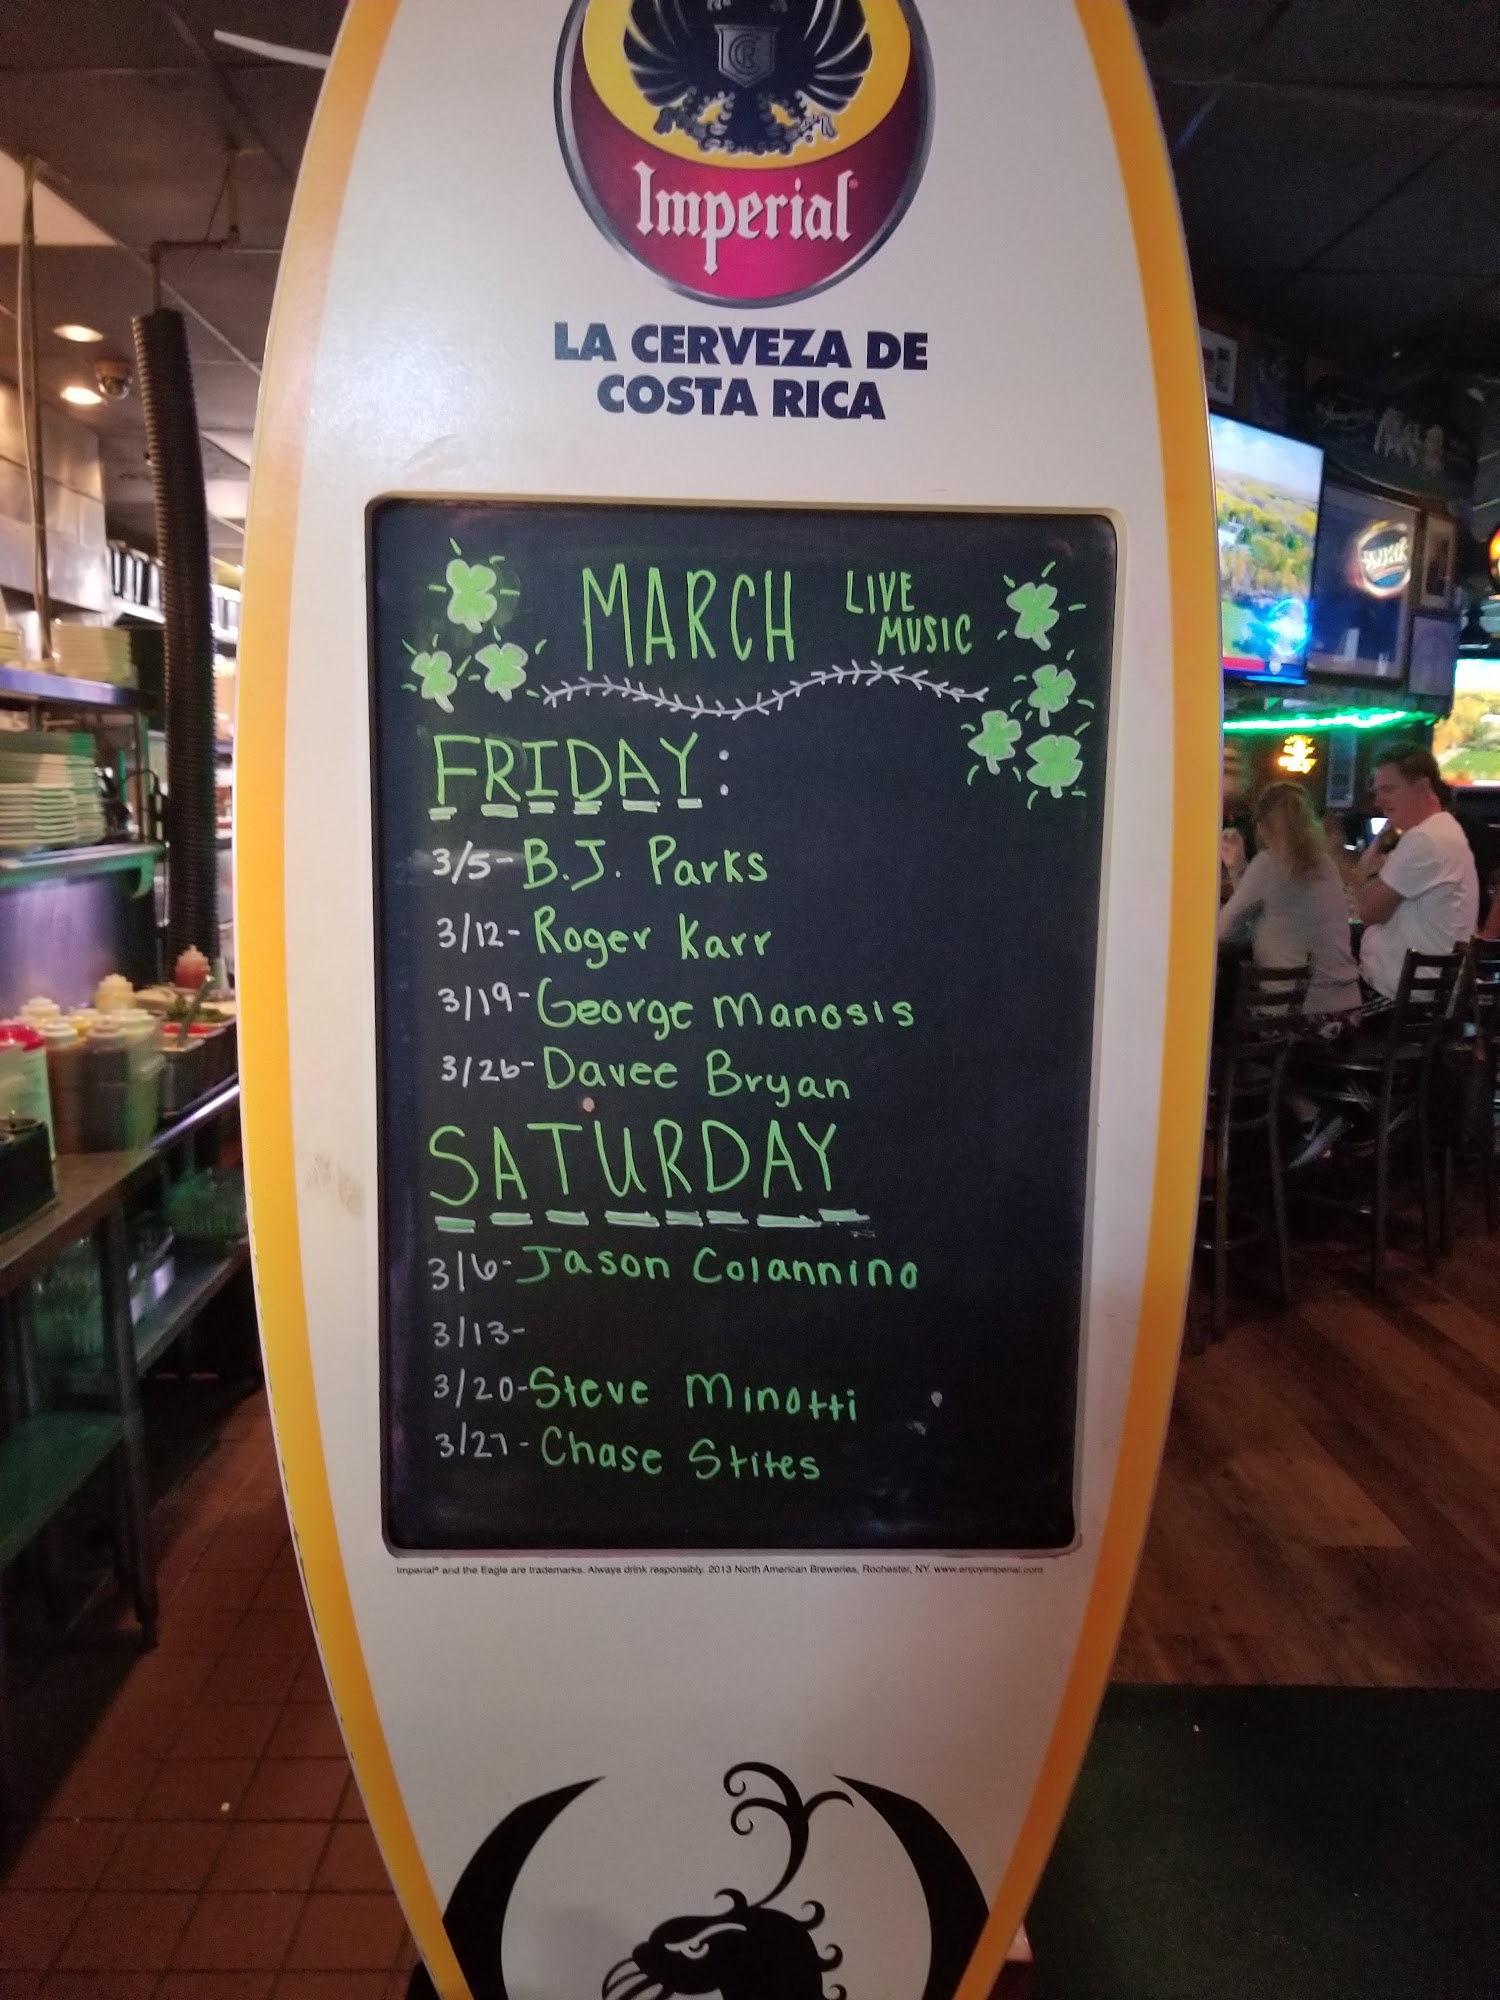 CR
Imperial®
LA CERVEZA DE
COSTA RICA
MARCH LIVE
MUSIC
FRIDAY:
3/5- B.J. Parks
3/12- Roger Karr
3/19- George Manosis
3/26- Davee Bryan
SATURDAY
3/6- Jason Colannino
3/13-
3/20- Steve Minotti
3/27- Chase Stites
Imperial® and the Eagle are trademarks. Always drink responsibly. 2013 North American Breweries, Rochester, NY. www.enjoyimperial.com